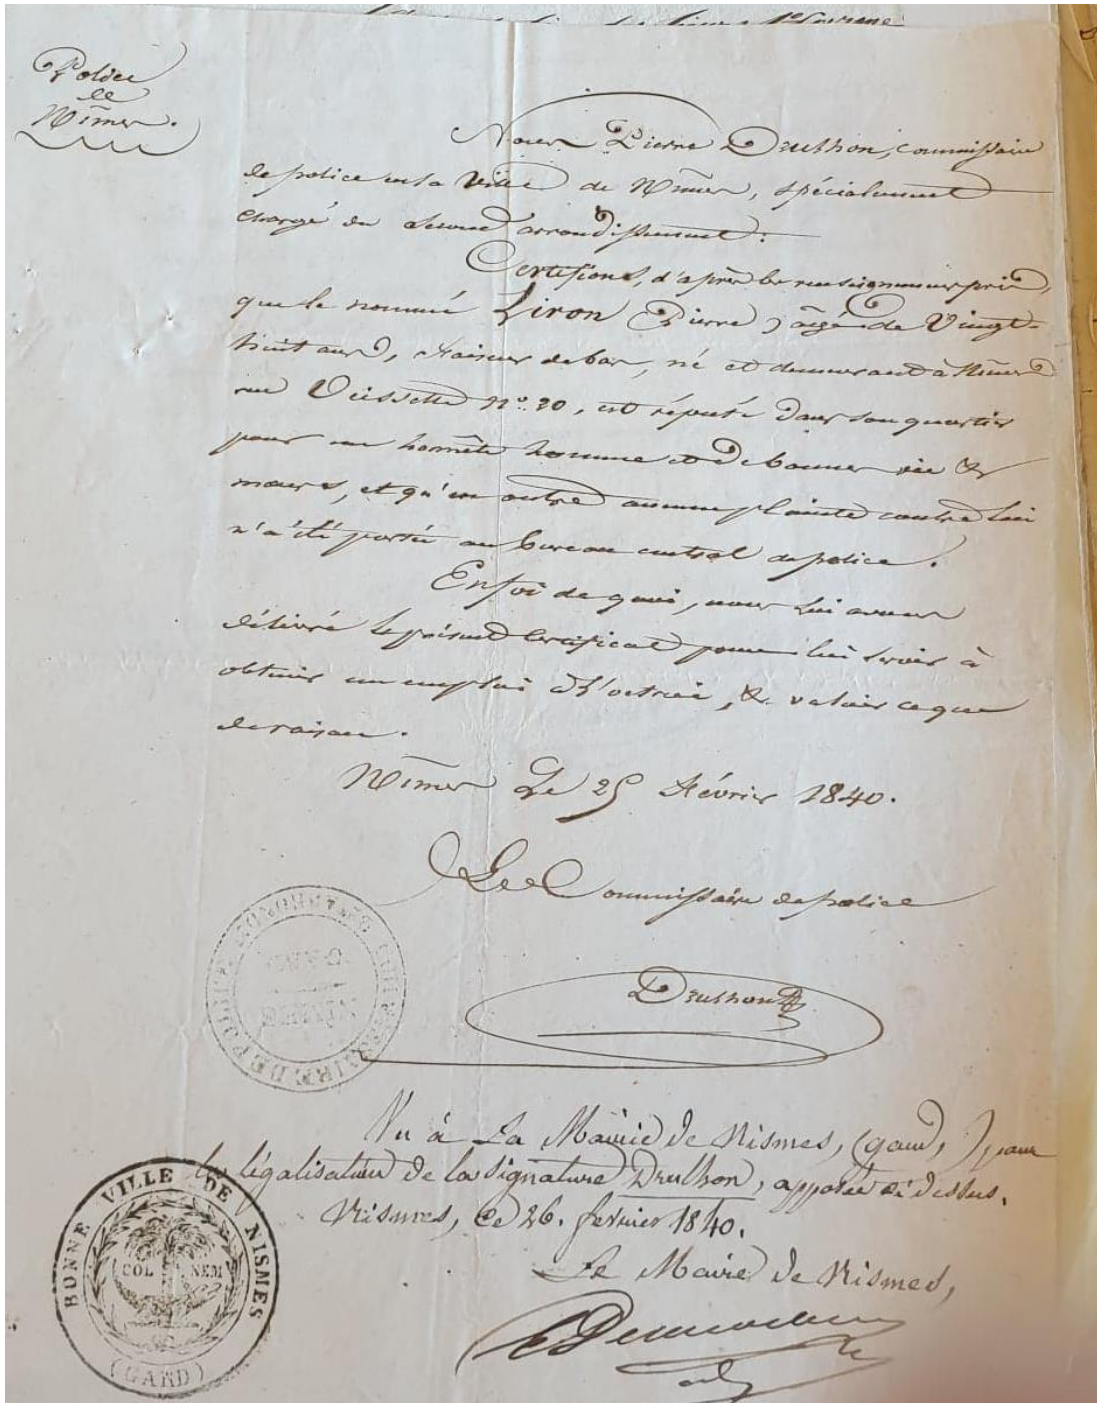 Police
de
Nîmes.
Nous Pierre Drulhon, commissaire
de police en la Ville de Nîmes, spécialement
chargé du second arrondissement :
Certifions, d'après les renseignemens pris,
que le nommé Liron Pierre, âgé de Vingt-
huit ans, faiseur de bas, né et demeurant à Nîmes
rue n° 20, est réputé dans son quartier
pour un honnête homme et de bonnes vie &
mœurs, et qu'en outre aucune plainte contre lui
n'a été portée au bureau central de police.
En foi de quoi, nous lui avons
délivré le présent Certificat pour lui servir à
obtenir un emploi à l'octroi, & valoir ce que
de raison.
Nîmes Le 25 Février 1840.
Le Commissaire de police
Drulhon
COMMISSAIRE DE POLICE
Vu à La Mairie de Nismes, (gard,) pour
la légalisation de la signature Drulhon, apposée ci dessus.
Nismes, ce 26. fevrier 1840.
Le Maire de Nismes,
BONNE VILLE DE NISMES
COL NEM
(GARD)